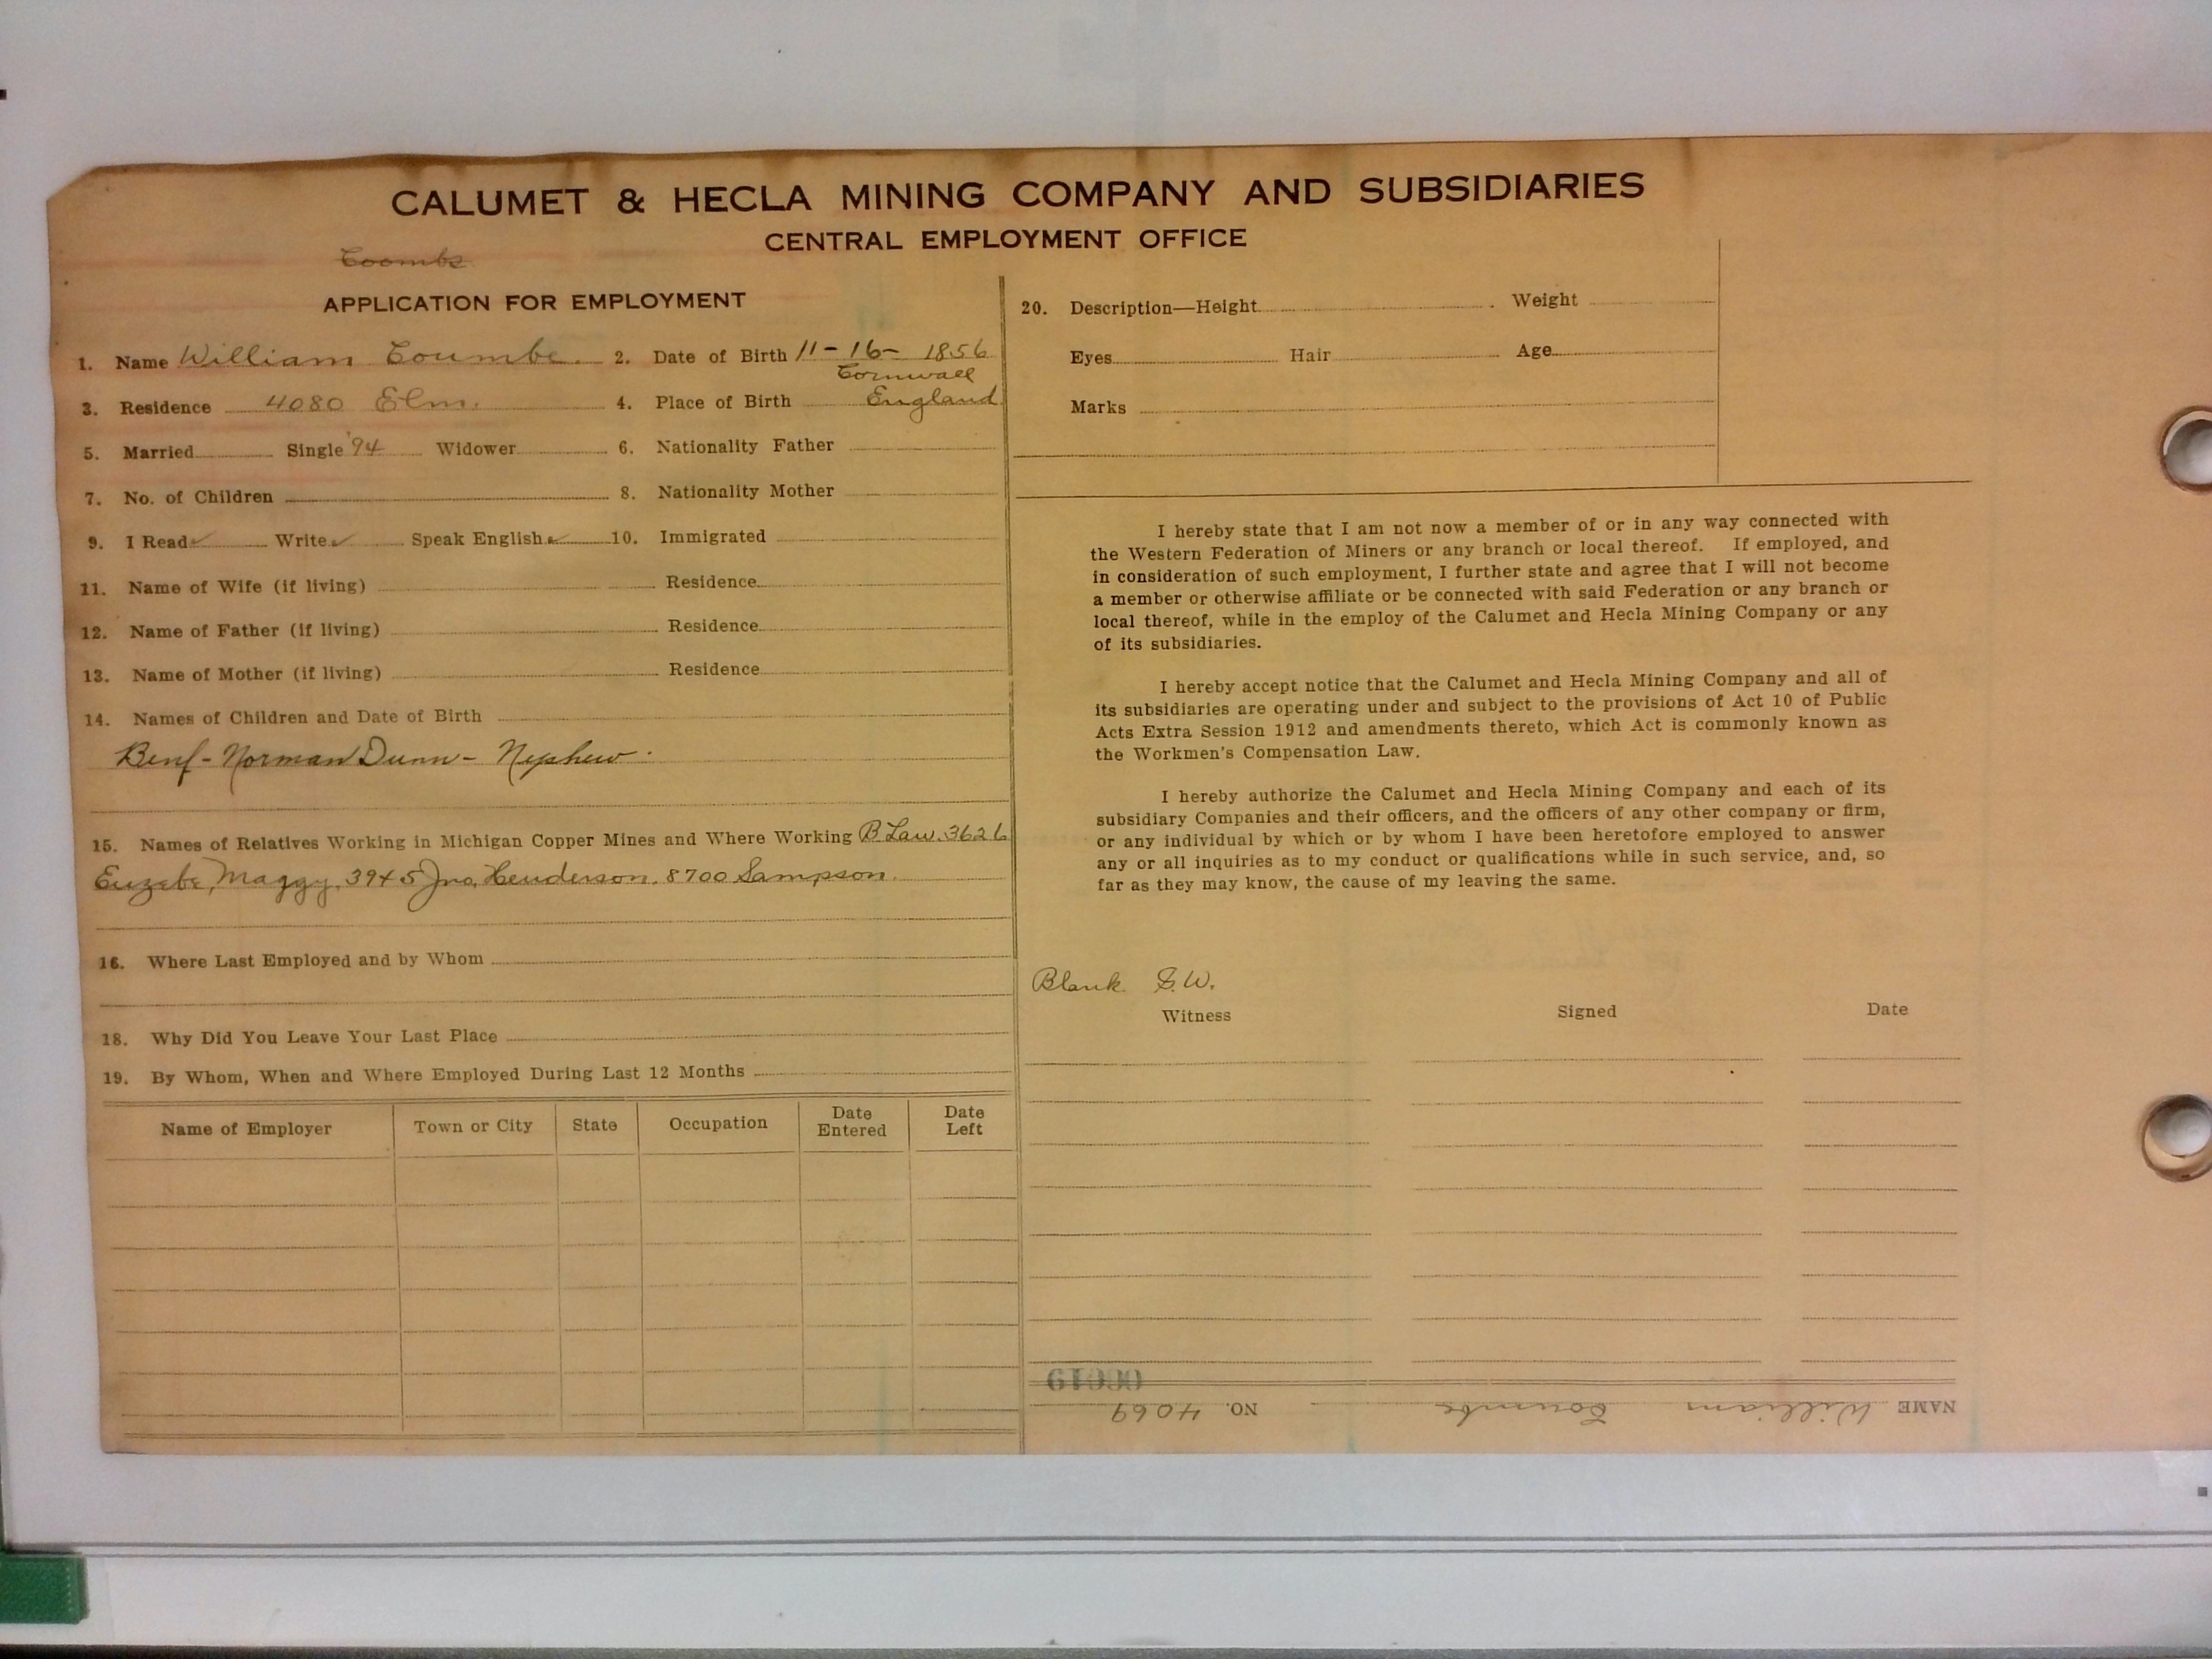 CALUMET & HECLA MINING COMPANY AND SUBSIDIARIES
CENTRAL EMPLOYMENT OFFICE
Coombs
APPLICATION FOR EMPLOYMENT
1. Name William Coumbe. 2. Date of Birth 11-16-1856
Cornwall
3. Residence 4080 Elm. 4. Place of Birth England
5. Married Single '94 Widower 6. Nationality Father
7. No. of Children 8. Nationality Mother
9. I Read ✓ Write ✓ Speak English ✓ 10. Immigrated
11. Name of Wife (if living) Residence
12. Name of Father (if living) Residence
13. Name of Mother (if living) Residence
14. Names of Children and Date of Birth
Benf - Norman Dunn - Nephew
15. Names of Relatives Working in Michigan Copper Mines and Where Working B Law. 3626
Maggy, 3945 Jno, Henderson. 8700 Sampson.
16. Where Last Employed and by Whom
18. Why Did You Leave Your Last Place
19. By Whom, When and Where Employed During Last 12 Months
Name of Employer Town or City State Occupation Date Entered Date Left
20. Description—Height Weight
Eyes Hair Age
Marks
I hereby state that I am not now a member of or in any way connected with
the Western Federation of Miners or any branch or local thereof. If employed, and
in consideration of such employment, I further state and agree that I will not become
a member or otherwise affiliate or be connected with said Federation or any branch or
local thereof, while in the employ of the Calumet and Hecla Mining Company or any
of its subsidiaries.
I hereby accept notice that the Calumet and Hecla Mining Company and all of
its subsidiaries are operating under and subject to the provisions of Act 10 of Public
Acts Extra Session 1912 and amendments thereto, which Act is commonly known as
the Workmen's Compensation Law.
I hereby authorize the Calumet and Hecla Mining Company and each of its
subsidiary Companies and their officers, and the officers of any other company or firm,
or any individual by which or by whom I have been heretofore employed to answer
any or all inquiries as to my conduct or qualifications while in such service, and, so
far as they may know, the cause of my leaving the same.
Blank S.W.
Witness Signed Date
NAME William Coumbe NO. 4069
00019